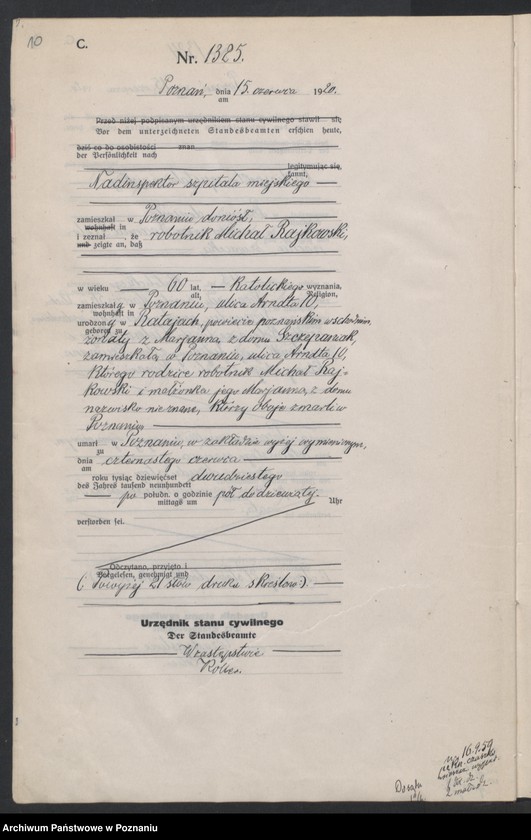 10
C.
Nr. 1385.
Poznań, dnia 15. czerwca 1920.
am
Przed niżej podpisanym urzędnikiem stanu cywilnego stawił się
Vor dem unterzeichneten Standesbeamten erschien heute,
dziś co do osobistości znan
der Persönlichkeit nach
legitymując się,
kannt,
Nadinspektor szpitala miejskiego
zamieszkał w Poznaniu doniósł,
wohnhaft in
i zeznał, że robotnik Michał Rajkowski,
und zeigte an, daß
w wieku 60 lat, katolickiego wyznania,
alt, Religion,
zamieszkały w Poznaniu, ulica Arndta 10,
wohnhaft in
urodzony w Ratajach, powiecie poznańskim wschodnim,
geboren zu
żonaty z Marjanną, z domu Szczepaniak,
zamieszkałą w Poznaniu, ulica Arndta 10,
którego rodzice robotnik Michał Raj-
kowski i małżonka jego Marjanna, z domu
nazwisko nieznane, którzy oboje zmarli w
Poznaniu,
umarł w Poznaniu, w zakładzie wyżej wymienionym,
zu
dnia czternastego czerwca
am
roku tysiąc dziewięćset dwudziestego
des Jahres tausend neunhundert
po połudn. o godzinie pół do dziewiątej.
mittags um Uhr
verstorben sei.
Odczytano, przyjęto i
Vorgelesen, genehmigt und
(Powyżej 21 słów druku skreślono)
Urzędnik stanu cywilnego
Der Standesbeamte
W zastępstwie
16.9.59
Archiwum Państwowe w Poznaniu